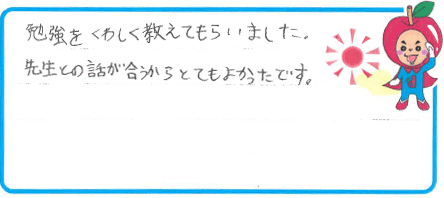 勉強をくわしく教えてもらいました。
先生との話が合うからとてもよかったです。